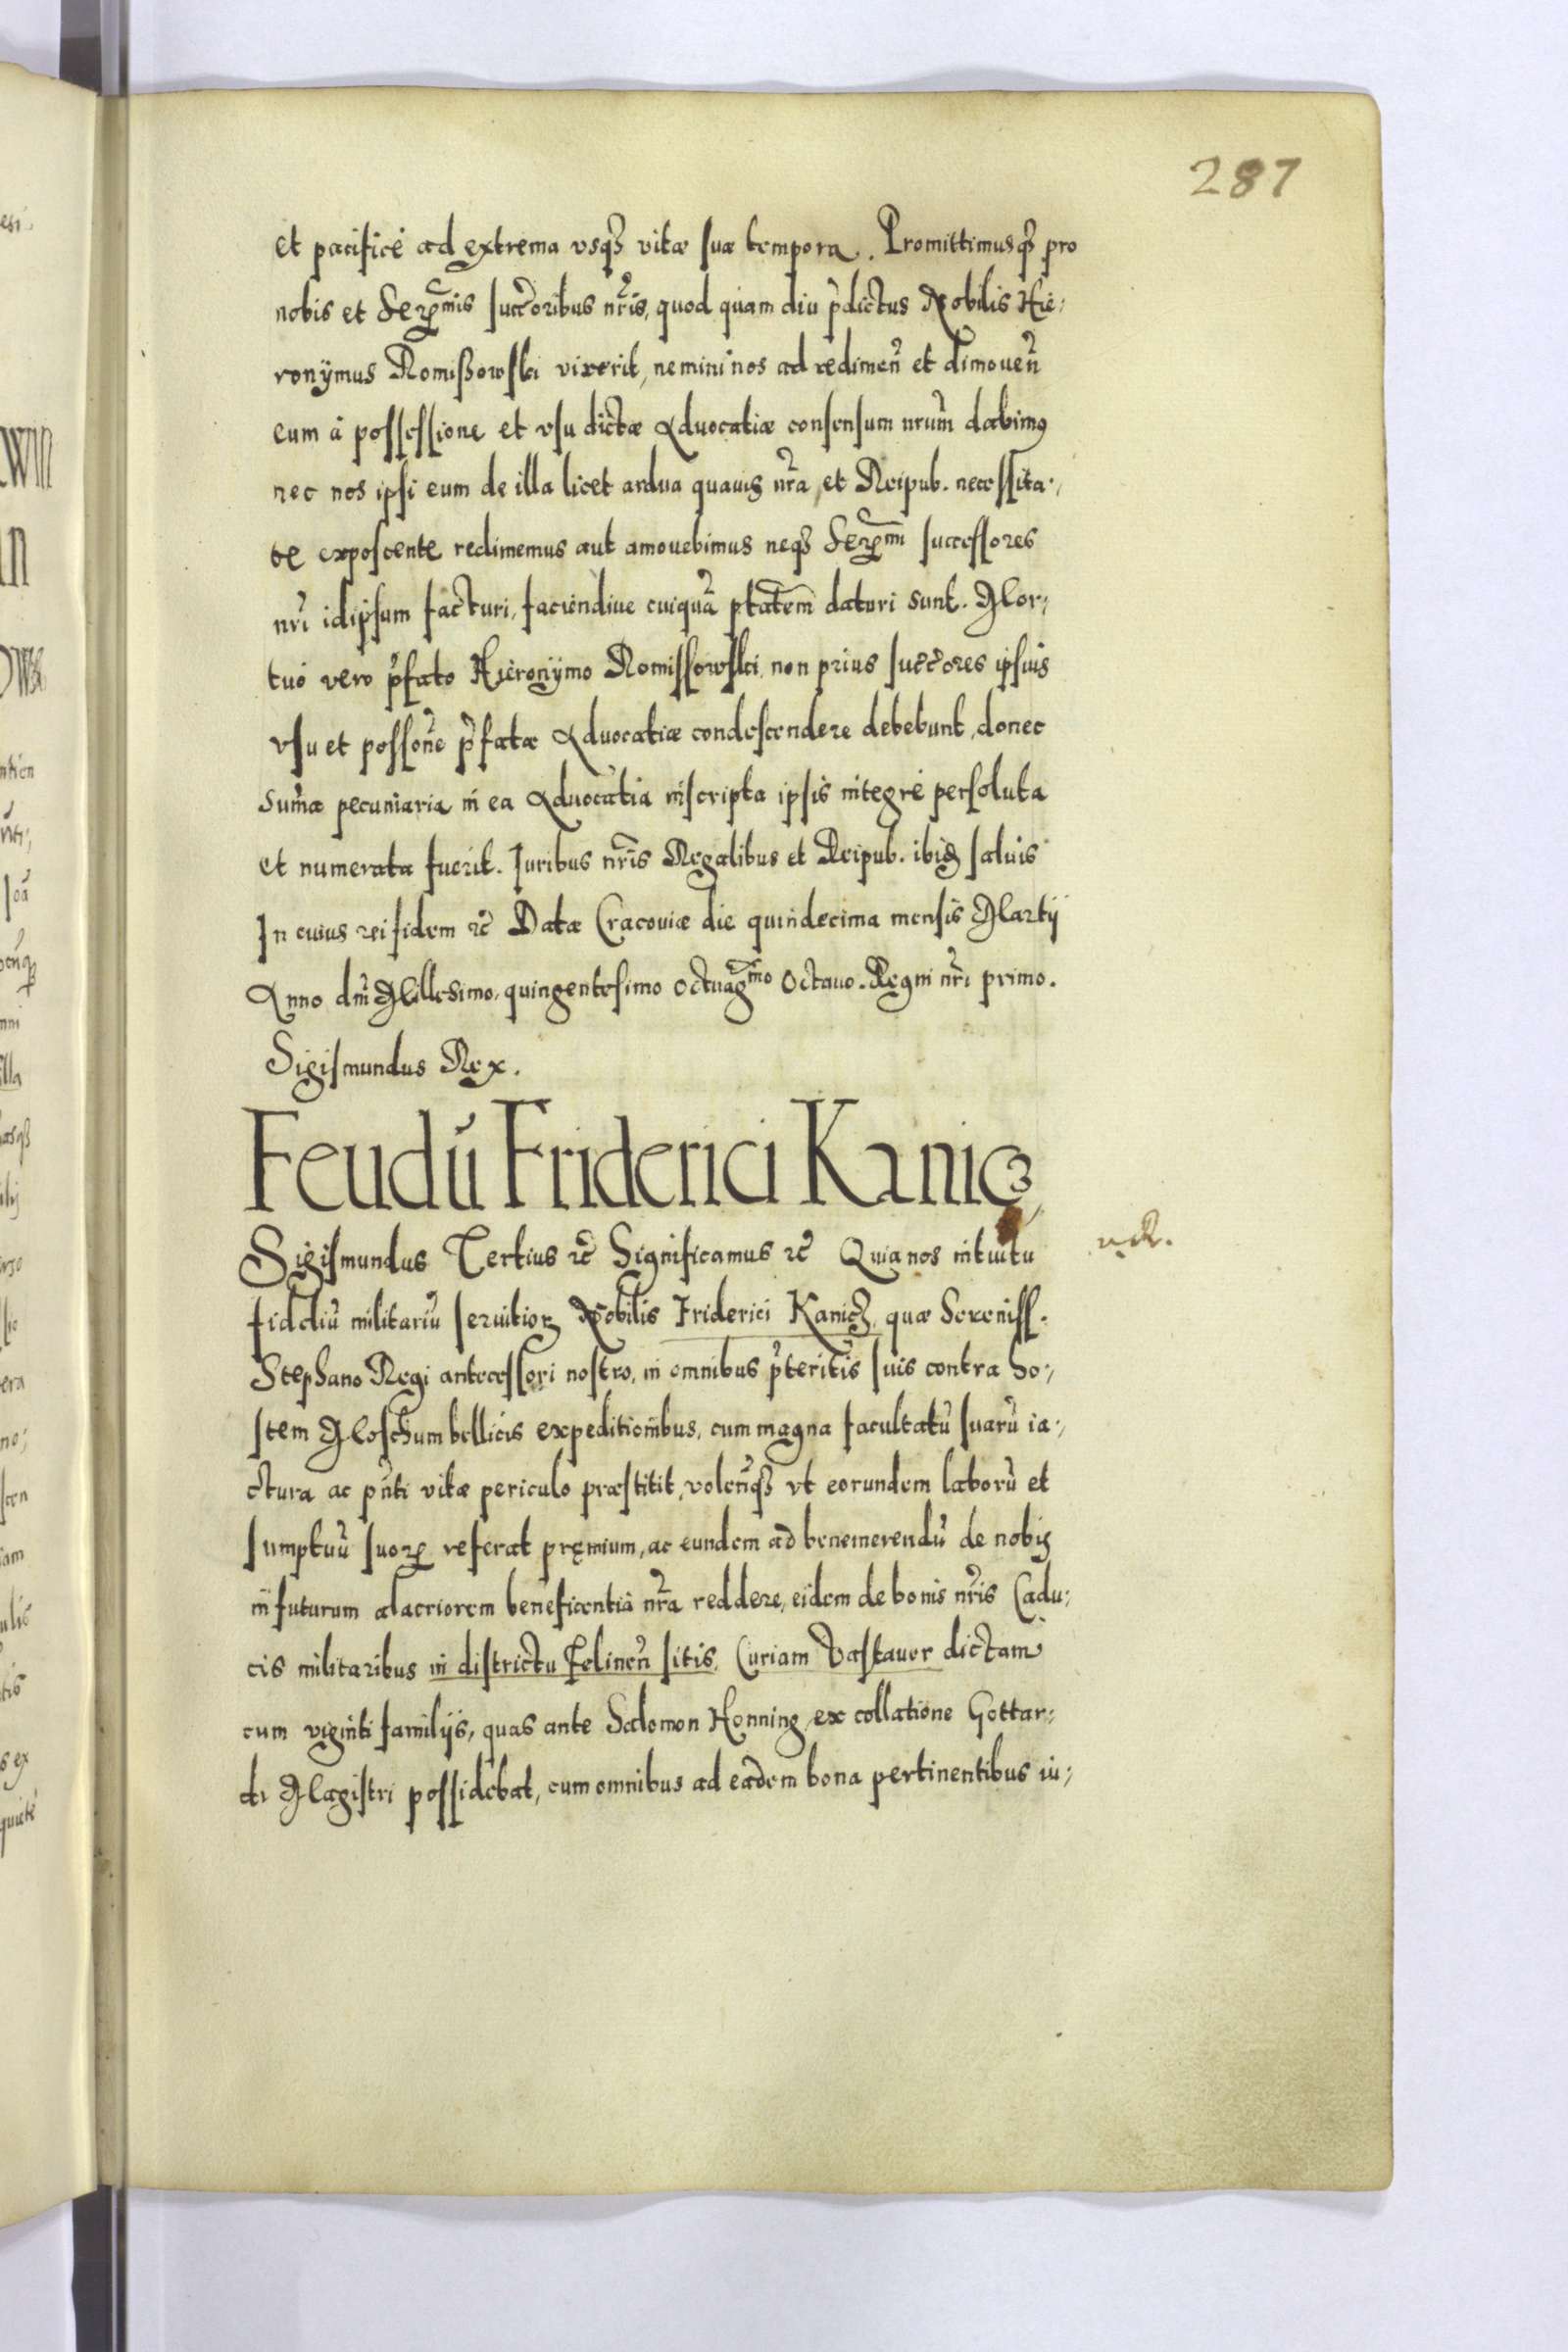 287
et pacificè ad extrema vsq₃ vitæ suæ tempora. Promittimusq₃ pro
nobis et Sermis succoribus nris, quod quam diu pdictus Nobilis Hie;
ronÿmus Romißowski vixerit, nemini nos ad redimen et dimouen
eum à possessione et vsu dictæ Aduocatiæ consensum nrum dabimꝰ
nec nos ipsi eum de illa licet ardua quauis nra et Reipub. necessita;
te exposcente redimemus aut amouebimus neq₃ Sermi successores
nri idipsum facturi, faciendiue cuiquā ptatem daturi sunt. Mor;
tuo vero pfato Hieronÿmo Romissowski, non prius succores ipsius
vsu et possone pfatæ Aduocatiæ condescendere debebunt, donec
suma pecuniaria in ea Aduocatia inscripta ipsis integrè persoluta
et numerata fuerit. Iuribus nris Regalibus et Reipub. ibid₃ saluis
In cuius rei fidem etc Datæ Cracouiæ die quindecima mensis Martij
Anno dni Millesimo, quingentesimo octuagmo Octauo. Regni nri primo.
Sigismundus Rex.
Feudū Friderici Kanicz
Sigismundus Tertius etc Significamus etc Quia nos intuitu
fideliū militariū seruitior Nobilis Friderici Kanicz, quæ Sereniss.
Stephano Regi antecessori nostro, in omnibus pteritis suis contra ho;
stem Moschum bellicis expeditionibus, cum magna facultatū suarū ia;
ctura ac pnti vitæ periculo præstitit, volenq₃ vt eorundem laborū et
sumptuū suorꝝ referat pręmium, ac eundem ad benemerendū de nobis
in futurum alacriorem beneficentiâ nra reddere, eidem de bonis nris Cadu;
cis militaribus in districtu Felinen sitis, Curiam Vastauer dictam
cum viginti familijs, quas ante Salomon Henning ex collatione Gottar;
di Magistri possidebat, cum omnibus ad eadem bona pertinentibus iu;